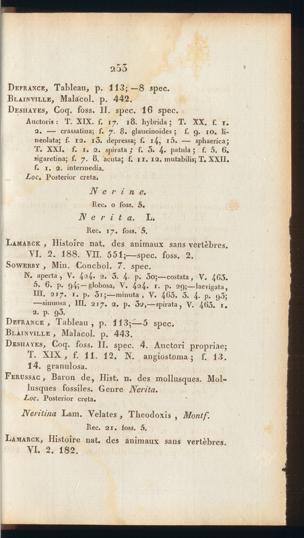 253
DEFRANCE, Tableau, p. 113; —8 spec.
BLAINVILLE, Malacol. p. 442.
DESHAYES, Coq. foss. II. spec. 16 spec.
Auctoris: T. XIX. f. 17. 18. hybrida; T. XX. f. 1.
2. — crassatina; f. 7. 8. glaucinoides; f. 9. 10. li-
neolata; f. 12. 13. depressa; f. 14. 15. — sphaerica;
T. XXI. f. 1. 2. spirata; f. 3. 4. patula; f. 5. 6.
sigaretina; f. 7. 8. acuta; f. 11. 12. mutabilis; T. XXII.
f. 1. 2. intermedia.
Loc. Posterior creta.
Nerine.
Rec. 0 foss. 5.
Nerita. L.
Rec. 17. foss. 5.
LAMARCK, Histoire nat. des animaux sans vertèbres.
VI. 2. 188. VII. 551;—spec. foss. 2.
SOWERBY, Min. Conchol. 7. spec.
N. aperta, V. 424. 2. 3. 4. p. 30;—costata, V. 463.
5. 6. p. 94;—globosa, V. 424. 1. p. 29;—laevigata,
III. 217. 1. p. 31;—minuta, V. 463. 3. 4. p. 93;
—sinuosa, III. 217. 2. p. 32,—spirata, V. 463. 1.
2. p. 93.
DEFRANCE, Tableau, p. 113;—5 spec.
BLAINVILLE, Malacol. p. 443.
DESHAYES, Coq. foss. II. spec. 4. Auctori propriae;
T. XIX, f. 11. 12. N. angiostoma; f. 13.
14. granulosa.
FERUSSAC, Baron de, Hist. n. des mollusques. Mol-
lusques fossiles. Genre Nerita.
Loc. Posterior creta.
Neritina Lam. Velates, Theodoxis, Montf.
Rec. 21. foss. 5.
LAMARCK, Histoire nat. des animaux sans vertèbres.
VI. 2. 182.